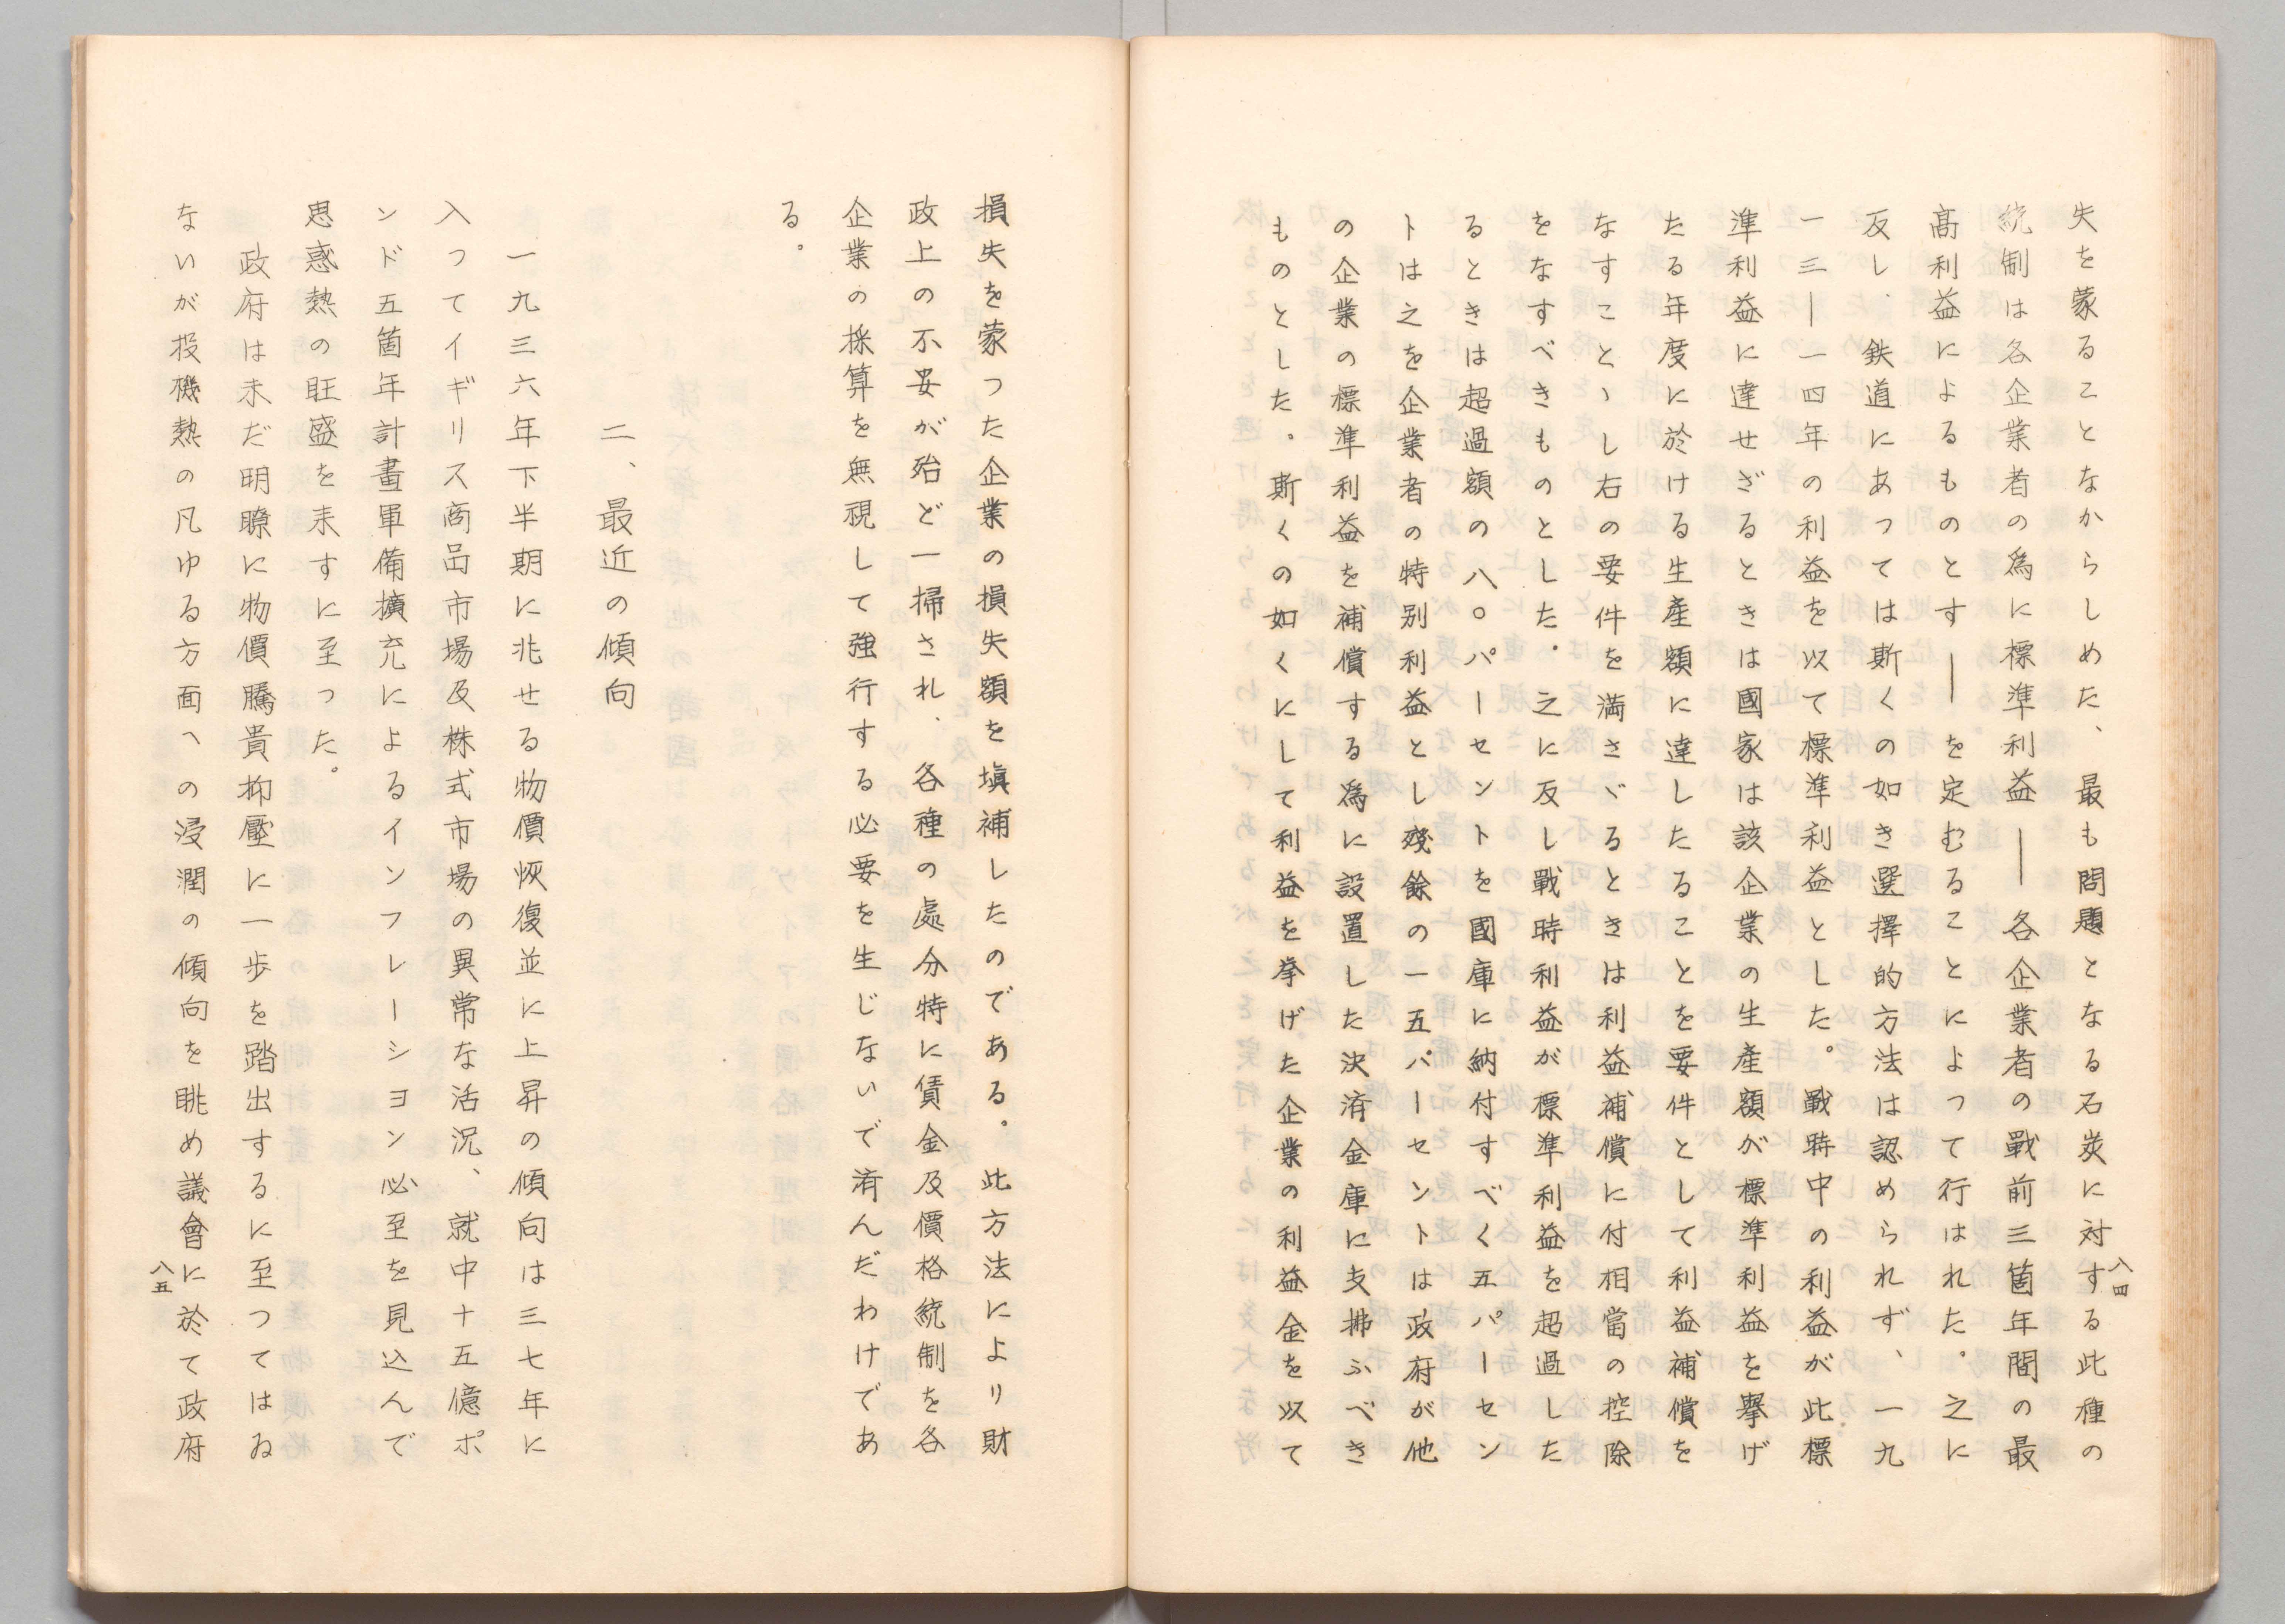 失を蒙ることなからしめた、最も問題となる石炭に対する此種の
統制は各企業者の為に標準利益――各企業者の戰前三箇年間の最
高利益によるものとす――を定むることによって行はれた。之に
反し、鉄道にあつては斯くの如き選擇的方法は認められず、一九
一三―一四年の利益を以て標準利益とした。戰時中の利益が此標
準利益に達せざるときは國家は該企業の生産額が標準利益を擧げ
たる年度に於ける生産額に達したることを要件として利益補償を
なすことゝし右の要件を満さゞるときは利益補償に付相當の控除
をなすべきものとした。之に反し戰時利益が標準利益を超過した
るときは超過額の八〇パーセントを國庫に納付すべく五パーセン
トは之を企業者の特別利益とし殘餘の一五パーセントは政府が他
の企業の標準利益を補償する為に設置した決済金庫に支拂ふべき
ものとした。斯くの如くにして利益を挙げた企業の利益金を以て
八四
損失を蒙つた企業の損失額を塡補したのである。此方法により財
政上の不安が殆ど一掃され、各種の處分特に賃金及價格統制を各
企業の採算を無視して強行する必要を生じないで済んだわけであ
る。
二、最近の傾向
一九三六年下半期に兆せる物價恢復並に上昇の傾向は三七年に
入つてイギリス商品市場及株式市場の異常な活況、就中十五億ポ
ンド五箇年計畫軍備擴充によるインフレーシヨン必至を見込んで
思惑熱の旺盛を来すに至つた。
政府は未だ明瞭に物價騰貴抑壓に一歩を踏出するに至つてはゐ
ないが投機熱の凡ゆる方面への浸潤の傾向を眺め議會に於て政府
八五